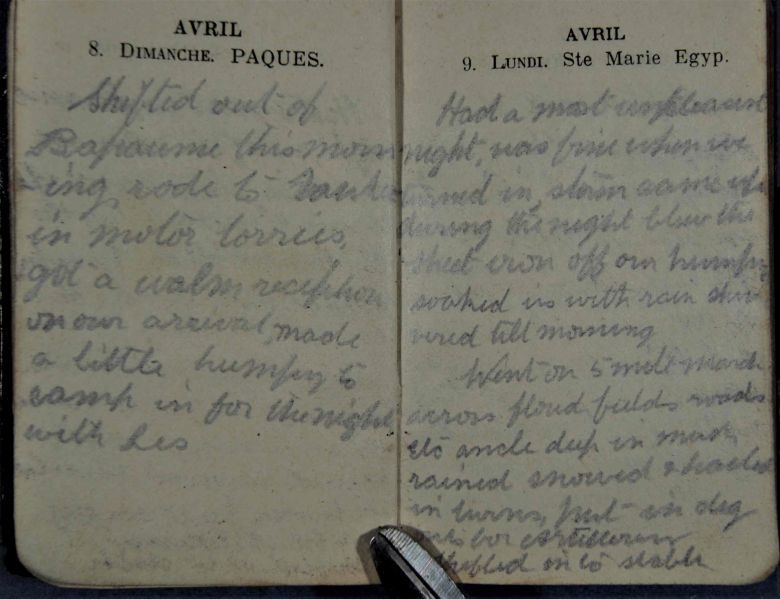 AVRIL
8. DIMANCHE. PAQUES.
Shifted out of
Bapaume this morn
ing rode to
in motor lorries,
got a walm reception
on our arrival, made
a little humpy to
camp in for the night
with Les
AVRIL
9. LUNDI. Ste Marie Egyp.
Had a most unpleasant
night, was fine when we
turned in, storm came up
during the night blew the
sheet iron off our humpy
soaked us with rain shiv
ered till morning
Went on 5 mile march
across ploud fields roads
etc ancle deep in mud,
rained snowed & hailed
in turns, put in dig
outs for artillery
shifted in to stable